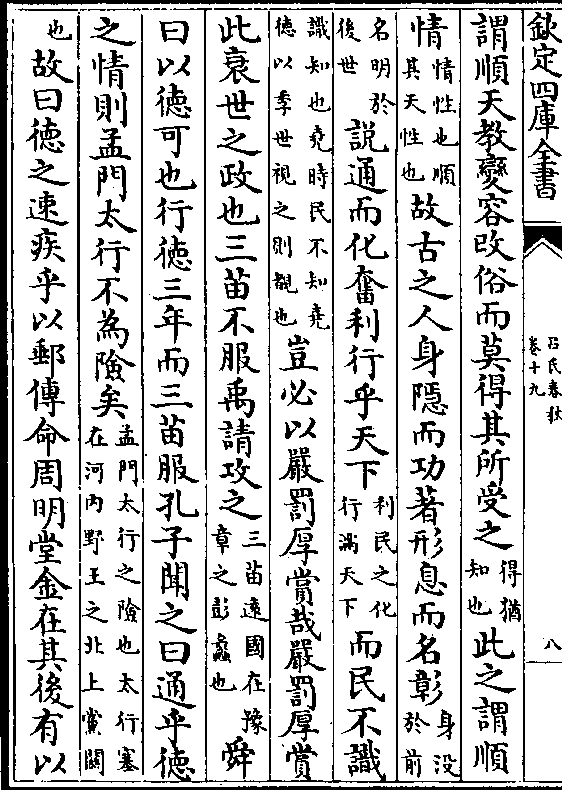 欽定四庫全書
呂氏春秋
卷十九
八
謂順天教變容改俗而莫得其所受之得猶知也此之謂順
情情性也順其天性也故古之人身隱而功著形息而名彰身没於前
名明於後世説通而化奮利行乎天下利民之化行滿天下而民不識
識知也堯時民不知堯德以季世視之則覩也豈必以嚴罰厚賞哉嚴罰厚賞
此衰世之政也三苗不服禹請攻之三苗逺國在豫章之彭蠡也舜
曰以徳可也行徳三年而三苗服孔子聞之曰通乎徳
之情則孟門太行不為險矣孟門太行之險也太行塞在河内野王之北上黨關
也故曰徳之速疾乎以郵傳命周明堂金在其後有以